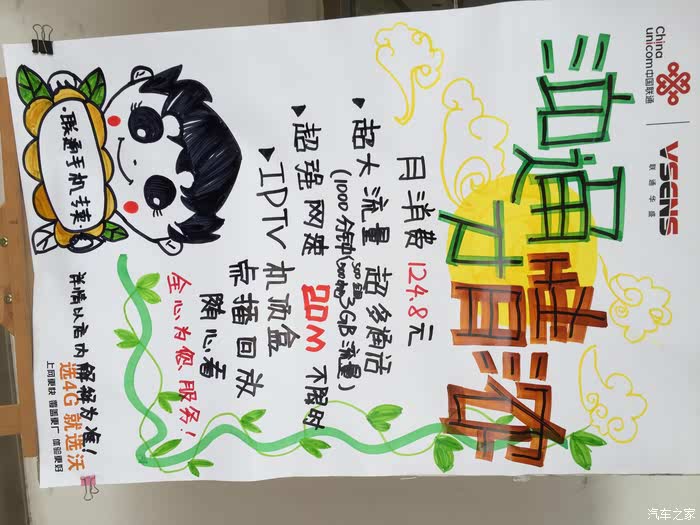 China unicom中国联通
VSENS
联通华盛
通
月消费 124.8元
超大流量 超多通话
(1000分钟 3GB流量)
超强网速 20M 不限时
IPTV 机顶盒
点播回放
随心看
全心为您服务!
联通手机专卖
详情以店内解释为准!
选4G就选沃
上网更快 覆盖更广 体验更好
汽车之家